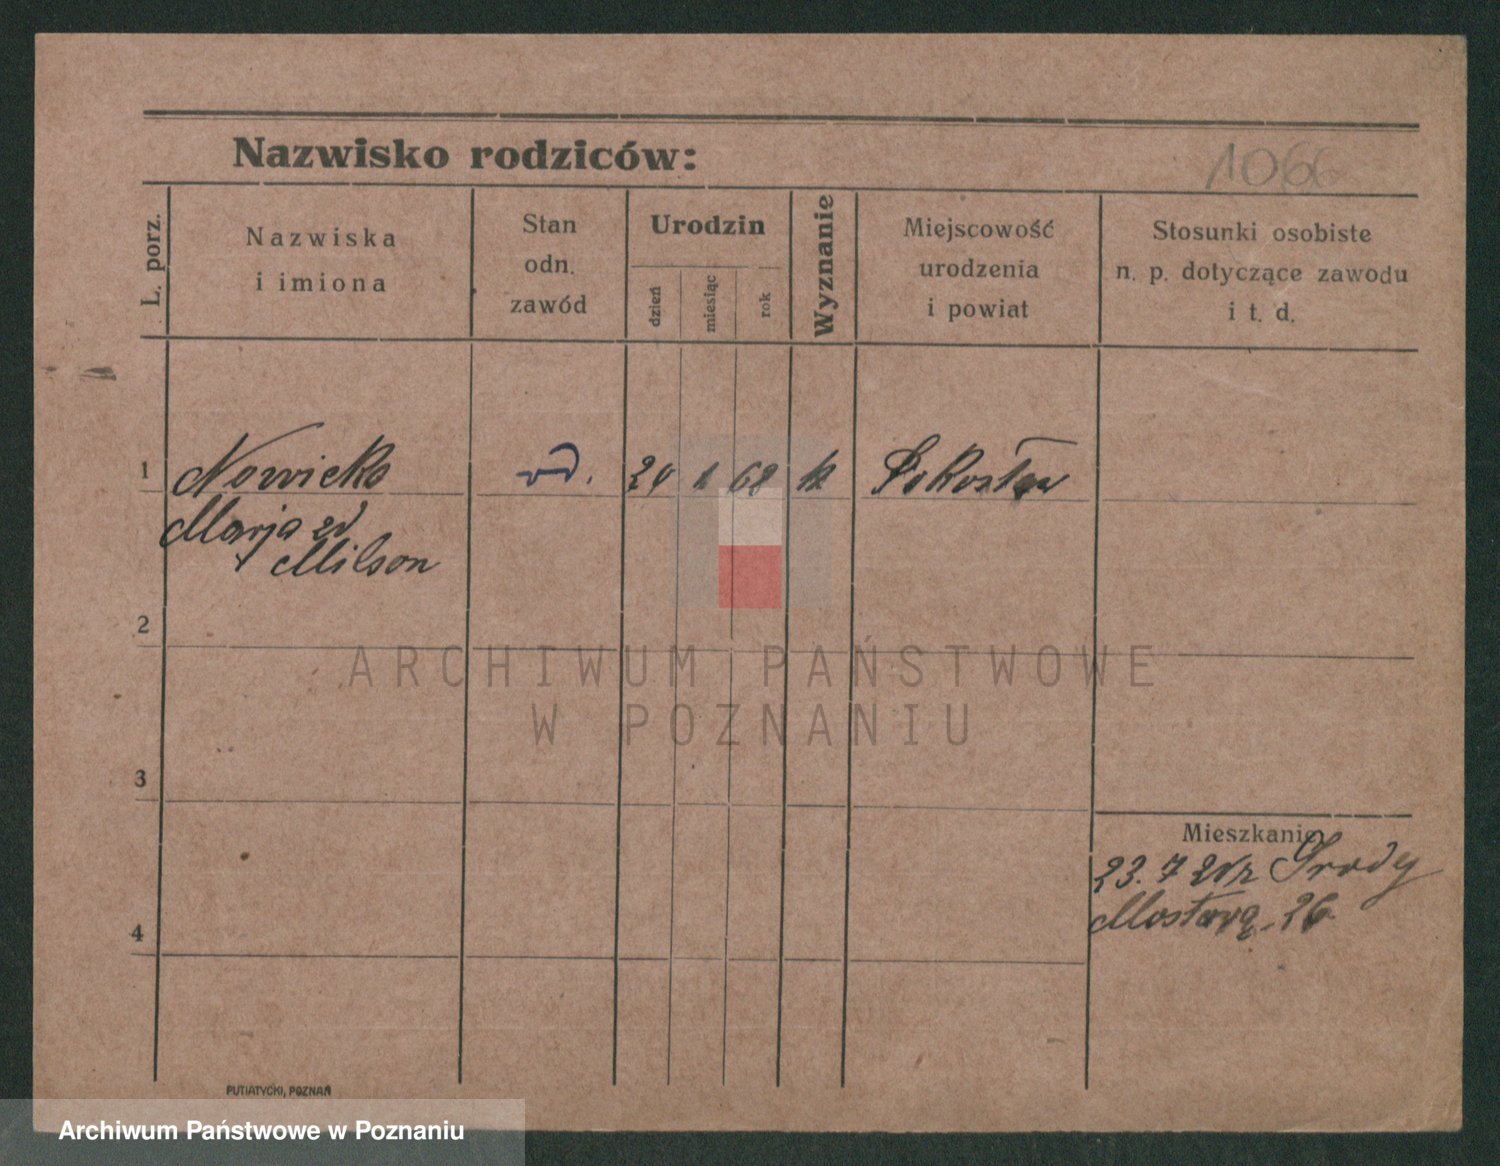 Nazwisko rodziców:
1066
L. porz.
Nazwiska
i imiona
Stan
odn.
zawód
Urodzin
dzień
miesiąc
rok
Wyznanie
Miejscowość
urodzenia
i powiat
Stosunki osobiste
n. p. dotyczące zawodu
i t. d.
1
Nowicka
wd.
24
1
68
k
Marja
Milson
2
3
4
Mieszkanie
23. 7
26
ARCHIWUM PAŃSTWOWE
W POZNANIU
PUTIATYCKI, POZNAŃ
Archiwum Państwowe w Poznaniu